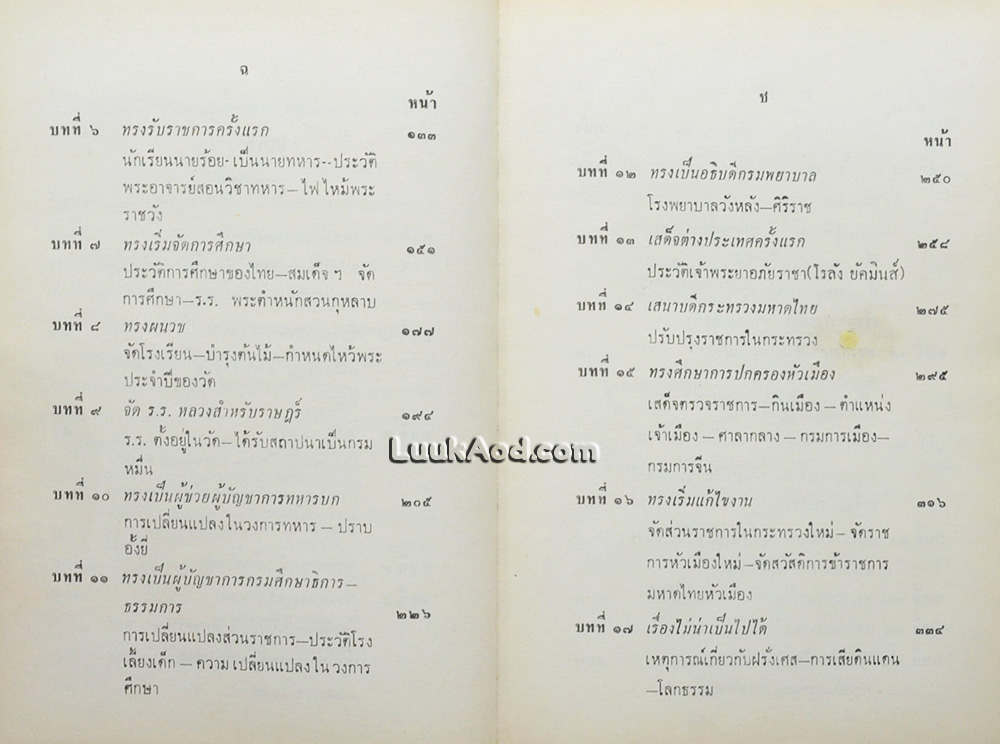 ฉ
หน้า
บทที่ ๖ ทรงรับราชการครั้งแรก ๑๓๓
นักเรียนนายร้อย- เป็นนายทหาร-- ประวัติ
พระอาจารย์สอนวิชาทหาร – ไฟไหม้พระ
ราชวัง
บทที่ ๗ ทรงเริ่มจัดการศึกษา ๑๕๑
ประวัติการศึกษาของไทย—สมเด็จ ฯ จัด
การศึกษา—ร.ร. พระตำหนักสวนกุหลาบ
บทที่ ๘ ทรงผนวช ๑๗๗
จัดโรงเรียน—บำรุงต้นไม้—กำหนดไหว้พระ
ประจำปีของวัด
บทที่ ๙ จัด ร.ร. หลวงสำหรับราษฎร์ ๑๙๔
ร.ร. ตั้งอยู่ในวัด – ได้รับสถาปนาเป็นกรม
หมื่น
บทที่ ๑๐ ทรงเป็นผู้ช่วยผู้บัญชาการทหารบก ๒๐๕
การเปลี่ยนแปลงในวงการทหาร — ปราบ
อั้งยี่
บทที่ ๑๑ ทรงเป็นผู้บัญชาการกรมศึกษาธิการ —
ธรรมการ ๒๒๖
การเปลี่ยนแปลงส่วนราชการ—ประวัติโรง
เลี้ยงเด็ก — ความเปลี่ยนแปลงในวงการ
ศึกษา
ช
หน้า
บทที่ ๑๒ ทรงเป็นอธิบดีกรมพยาบาล ๒๕๐
โรงพยาบาลวังหลัง—ศิริราช
บทที่ ๑๓ เสด็จต่างประเทศครั้งแรก ๒๕๘
ประวัติเจ้าพระยาอภัยราชา(โรลัง ยัคมินส์)
บทที่ ๑๔ เสนาบดีกระทรวงมหาดไทย ๒๗๕
ปรับปรุงราชการในกระทรวง
บทที่ ๑๕ ทรงศึกษาการปกครองหัวเมือง ๒๙๕
เสด็จตรวจราชการ—กินเมือง — ตำแหน่ง
เจ้าเมือง — ศาลากลาง — กรมการเมือง—
กรมการจีน
บทที่ ๑๖ ทรงเริ่มแก้ไขงาน ๓๑๖
จัดส่วนราชการในกระทรวงใหม่ – จัดราช
การหัวเมืองใหม่ –จัดสวัสดิการข้าราชการ
มหาดไทยหัวเมือง
บทที่ ๑๗ เรื่องไม่น่าเป็นไปได้ ๓๓๔
เหตุการณ์เกี่ยวกับฝรั่งเศส—การเสียดินแดน
—โลกธรรม
LuukAod.com